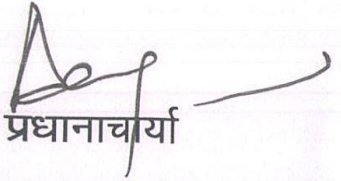 प्रधानाचार्या